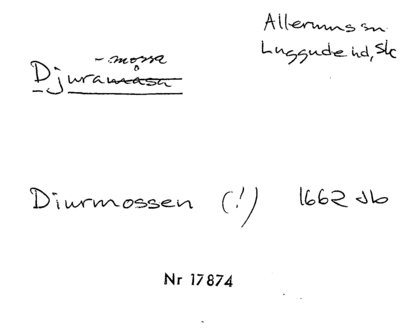 Allerums sn
Luggude hd, Sk
- mosse
Djuramåsa
Diurmossen (!) 1662 Jb
Nr 17874